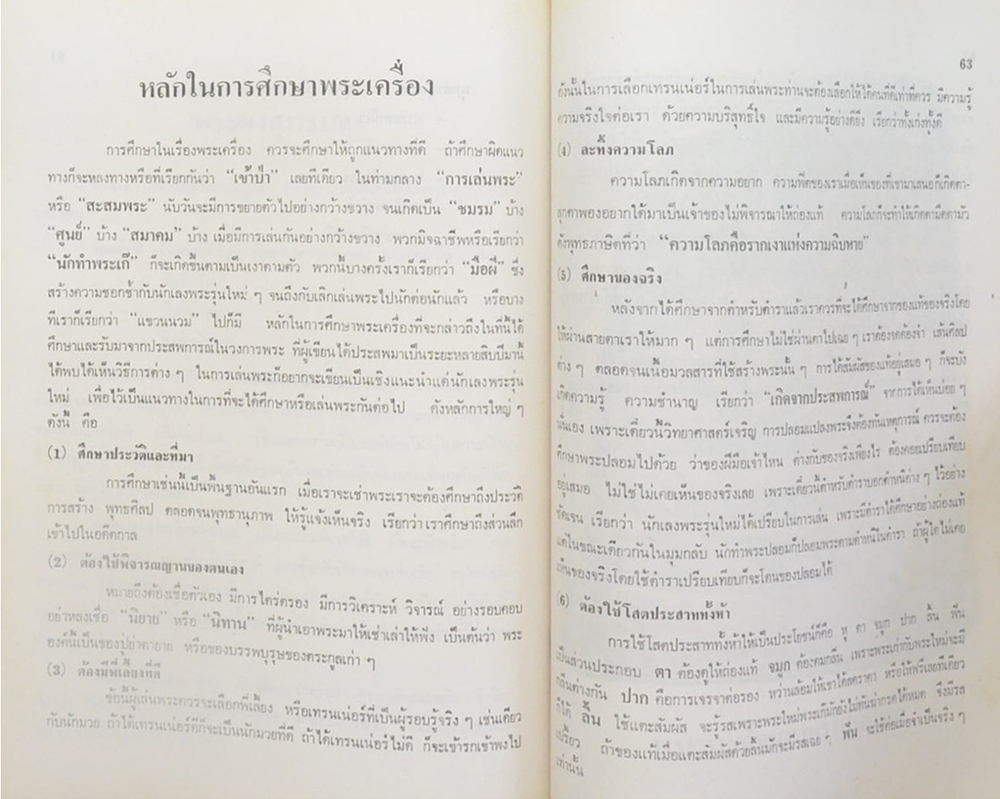 หลักในการศึกษาพระเครื่อง
การศึกษาในเรื่องพระเครื่อง ควรจะศึกษาให้ถูกแนวทางที่ดี ถ้าศึกษาผิดแนว
ทางก็จะหลงทางหรือที่เรียกกันว่า “เข้าป่า” เลยทีเดียว ในท่ามกลาง “การเล่นพระ”
หรือ “สะสมพระ” นับวันจะมีการขยายตัวไปอย่างกว้างขวาง จนเกิดเป็น “ชมรม” บ้าง
“ศูนย์” บ้าง “สมาคม” บ้าง เมื่อมีการเล่นกันอย่างกว้างขวาง พวกมิจฉาชีพหรือเรียกว่า
“นักทำพระเก๊” ก็จะเกิดขึ้นตามเป็นเงาตามตัว พวกนี้บางครั้งเราก็เรียกว่า “มือผี” ซึ่ง
สร้างความชอกช้ำกับนักเลงพระรุ่นใหม่ ๆ จนถึงกับเลิกเล่นพระไปนักต่อนักแล้ว หรือบาง
ทีเราก็เรียกว่า “แขวนนวม” ไปก็มี หลักในการศึกษาพระเครื่องที่จะกล่าวถึงในที่นี้ได้
ศึกษาและรับมาจากประสพการณ์ในวงการพระ ที่ผู้เขียนได้ประสพมาเป็นระยะหลายสิบปีมานี้
ได้พบได้เห็นวิธีการต่าง ๆ ในการเล่นพระก็อยากจะเขียนเป็นเชิงแนะนำแด่นักเลงพระรุ่น
ใหม่ เพื่อไว้เป็นแนวทางในการที่จะได้ศึกษาหรือเล่นพระกันต่อไป ดังหลักการใหญ่ ๆ
ดังนี้ คือ
(1) ศึกษาประวัติและที่มา
การศึกษาเช่นนี้เป็นพื้นฐานอันแรก เมื่อเราจะเช่าพระเราจะต้องศึกษาถึงประวัติ
การสร้าง พุทธศิลป ตลอดจนพุทธานุภาพ ให้รู้แจ้งเห็นจริง เรียกว่าเราศึกษาถึงส่วนลึก
เข้าไปในอดีตกาล
(2) ต้องใช้พิจารณญานของตนเอง
หมายถึงต้องเชื่อตัวเอง มีการไตร่ตรอง มีการวิเคราะห์ วิจารณ์ อย่างรอบคอบ
อย่าหลงเชื่อ “นิยาย” หรือ “นิทาน” ที่ผู้นำเอาพระมาให้เช่าเล่าให้ฟัง เป็นต้นว่า พระ
องค์นี้เป็นของปู่ย่าตายาย หรือของบรรพบุรุษของตระกูลเก่า ๆ
(3) ต้องมีพี่เลี้ยงที่ดี
ข้อนี้ผู้เล่นพระควรจะเลือกพี่เลี้ยง หรือเทรนเน่อร์ที่เป็นผู้รอบรู้จริง ๆ เช่นเดียว
กับนักมวย ถ้าได้เทรนเน่อร์ดีก็จะเป็นนักมวยที่ดี ถ้าได้เทรนเน่อร์ไม่ดี ก็จะเข้ารกเข้าพงไป
63
ดังนั้นในการเลือกเทรนเน่อร์ในการเล่นพระท่านจะต้องเลือกให้ได้คนที่ดีเท่าที่ควร มีความรู้
ความจริงใจต่อเรา ด้วยความบริสุทธิ์ใจ และมีความรู้อย่างดียิ่ง เรียกว่าทั้งเก่งทั้งดี
(4) ละทิ้งความโลภ
ความโลภเกิดจากความอยาก ความพิศของเราเมื่อเห็นของที่เขามาเสนอก็เกิดตา-
ลุกตาพองอยากได้มาเป็นเจ้าของไม่พิจารณาให้ถ่องแท้ ความโลภก็จะทำให้เกิดตามืดตามัว
ดังพุทธภาษิตที่ว่า “ความโลภคือรากเงาแห่งความฉิบหาย”
(5) ศึกษาของจริง
หลังจากได้ศึกษาจากตำหรับตำราแล้วเราควรที่จะได้ศึกษาจากของแท้ของจริงโดย
ให้ผ่านสายตาเราให้มาก ๆ แต่การศึกษาไม่ใช่ผ่านตาไปเฉย ๆ เราต้องจดต้องจำ เส้นศิลป
ต่าง ๆ ตลอดจนเนื้อมวลสารที่ใช้สร้างพระนั้น ๆ การได้สัมผัสของแท้อยู่เสมอ ๆ ก็จะบัง
เกิดความรู้ ความชำนาญ เรียกว่า “เกิดจากประสพการณ์” จากการได้เห็นบ่อย ๆ
นั่นเอง เพราะเดี๋ยวนี้วิทยาศาสตร์เจริญ การปลอมแปลงพระจึงต้องทันเหตุการณ์ ควรจะต้อง
ศึกษาพระปลอมไปด้วย ว่าของฝีมือเจ้าไหน ต่างกับของจริงเพียงไร ต้องคอยเปรียบเทียบ
อยู่เสมอ ไม่ใช่ไม่เคยเห็นของจริงเลย เพราะเดี๋ยวนี้ตำหรับตำราบอกตำหนิต่าง ๆ ไว้อย่าง
ชัดเจน เรียกว่า นักเลงพระรุ่นใหม่ได้เปรียบในการเล่น เพราะมีตำราได้ศึกษาอย่างถ่องแท้
แต่ในขณะเดียวกันในมุมกลับ นักทำพระปลอมก็ปลอมพระตามตำหนิในตำรา ถ้าผู้ใดไม่เคย
เห็นของจริงโดยใช้ตำราเปรียบเทียบก็จะโดนของปลอมได้
(6) ต้องใช้โสตประสาททั้งห้า
การใช้โสตประสาททั้งห้าให้เป็นประโยชน์ก็คือ หู ตา จมูก ปาก ลิ้น ฟัน
เป็นส่วนประกอบ ตา ต้องดูให้ถ่องแท้ จมูก ต้องดมกลิ่น เพราะพระเก่ากับพระใหม่จะมี
กลิ่นต่างกัน ปาก คือการเจรจาต่อรอง หว่านล้อมให้เขาได้ลดราคา หรือให้ฟรีเลยทีเดียว
ก็ได้ ลิ้น ใช้แตะสัมผัส จะรู้รสเพราะพระใหม่พระเก๊มักยังไม่พ้นน้ำกรดได้หมด จึงมีรส
เปรี้ยว ถ้าของแท้เมื่อแตะสัมผัสด้วยลิ้นมักจะมีรสเฉย ๆ ฟัน จะใช้ต่อเมื่อจำเป็นจริง ๆ
เท่านั้น